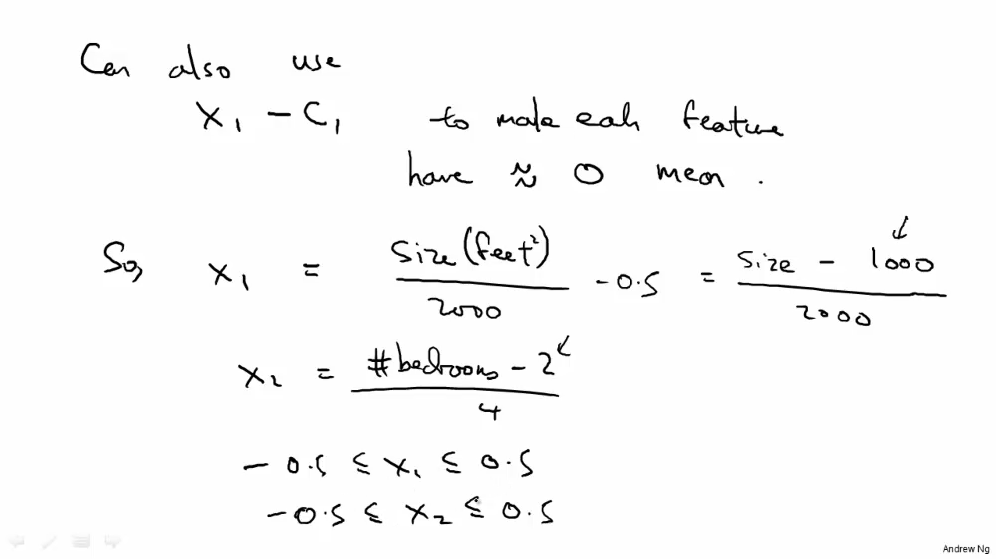 Can also use
x₁ - c₁ to make each feature
have ≈ 0 mean.
So, x₁ = size(feet²)/2000 - 0.5 = size - 1000/2000
x₂ = #bedrooms - 2/4
-0.5 ≤ x₁ ≤ 0.5
-0.5 ≤ x₂ ≤ 0.5
Andrew Ng